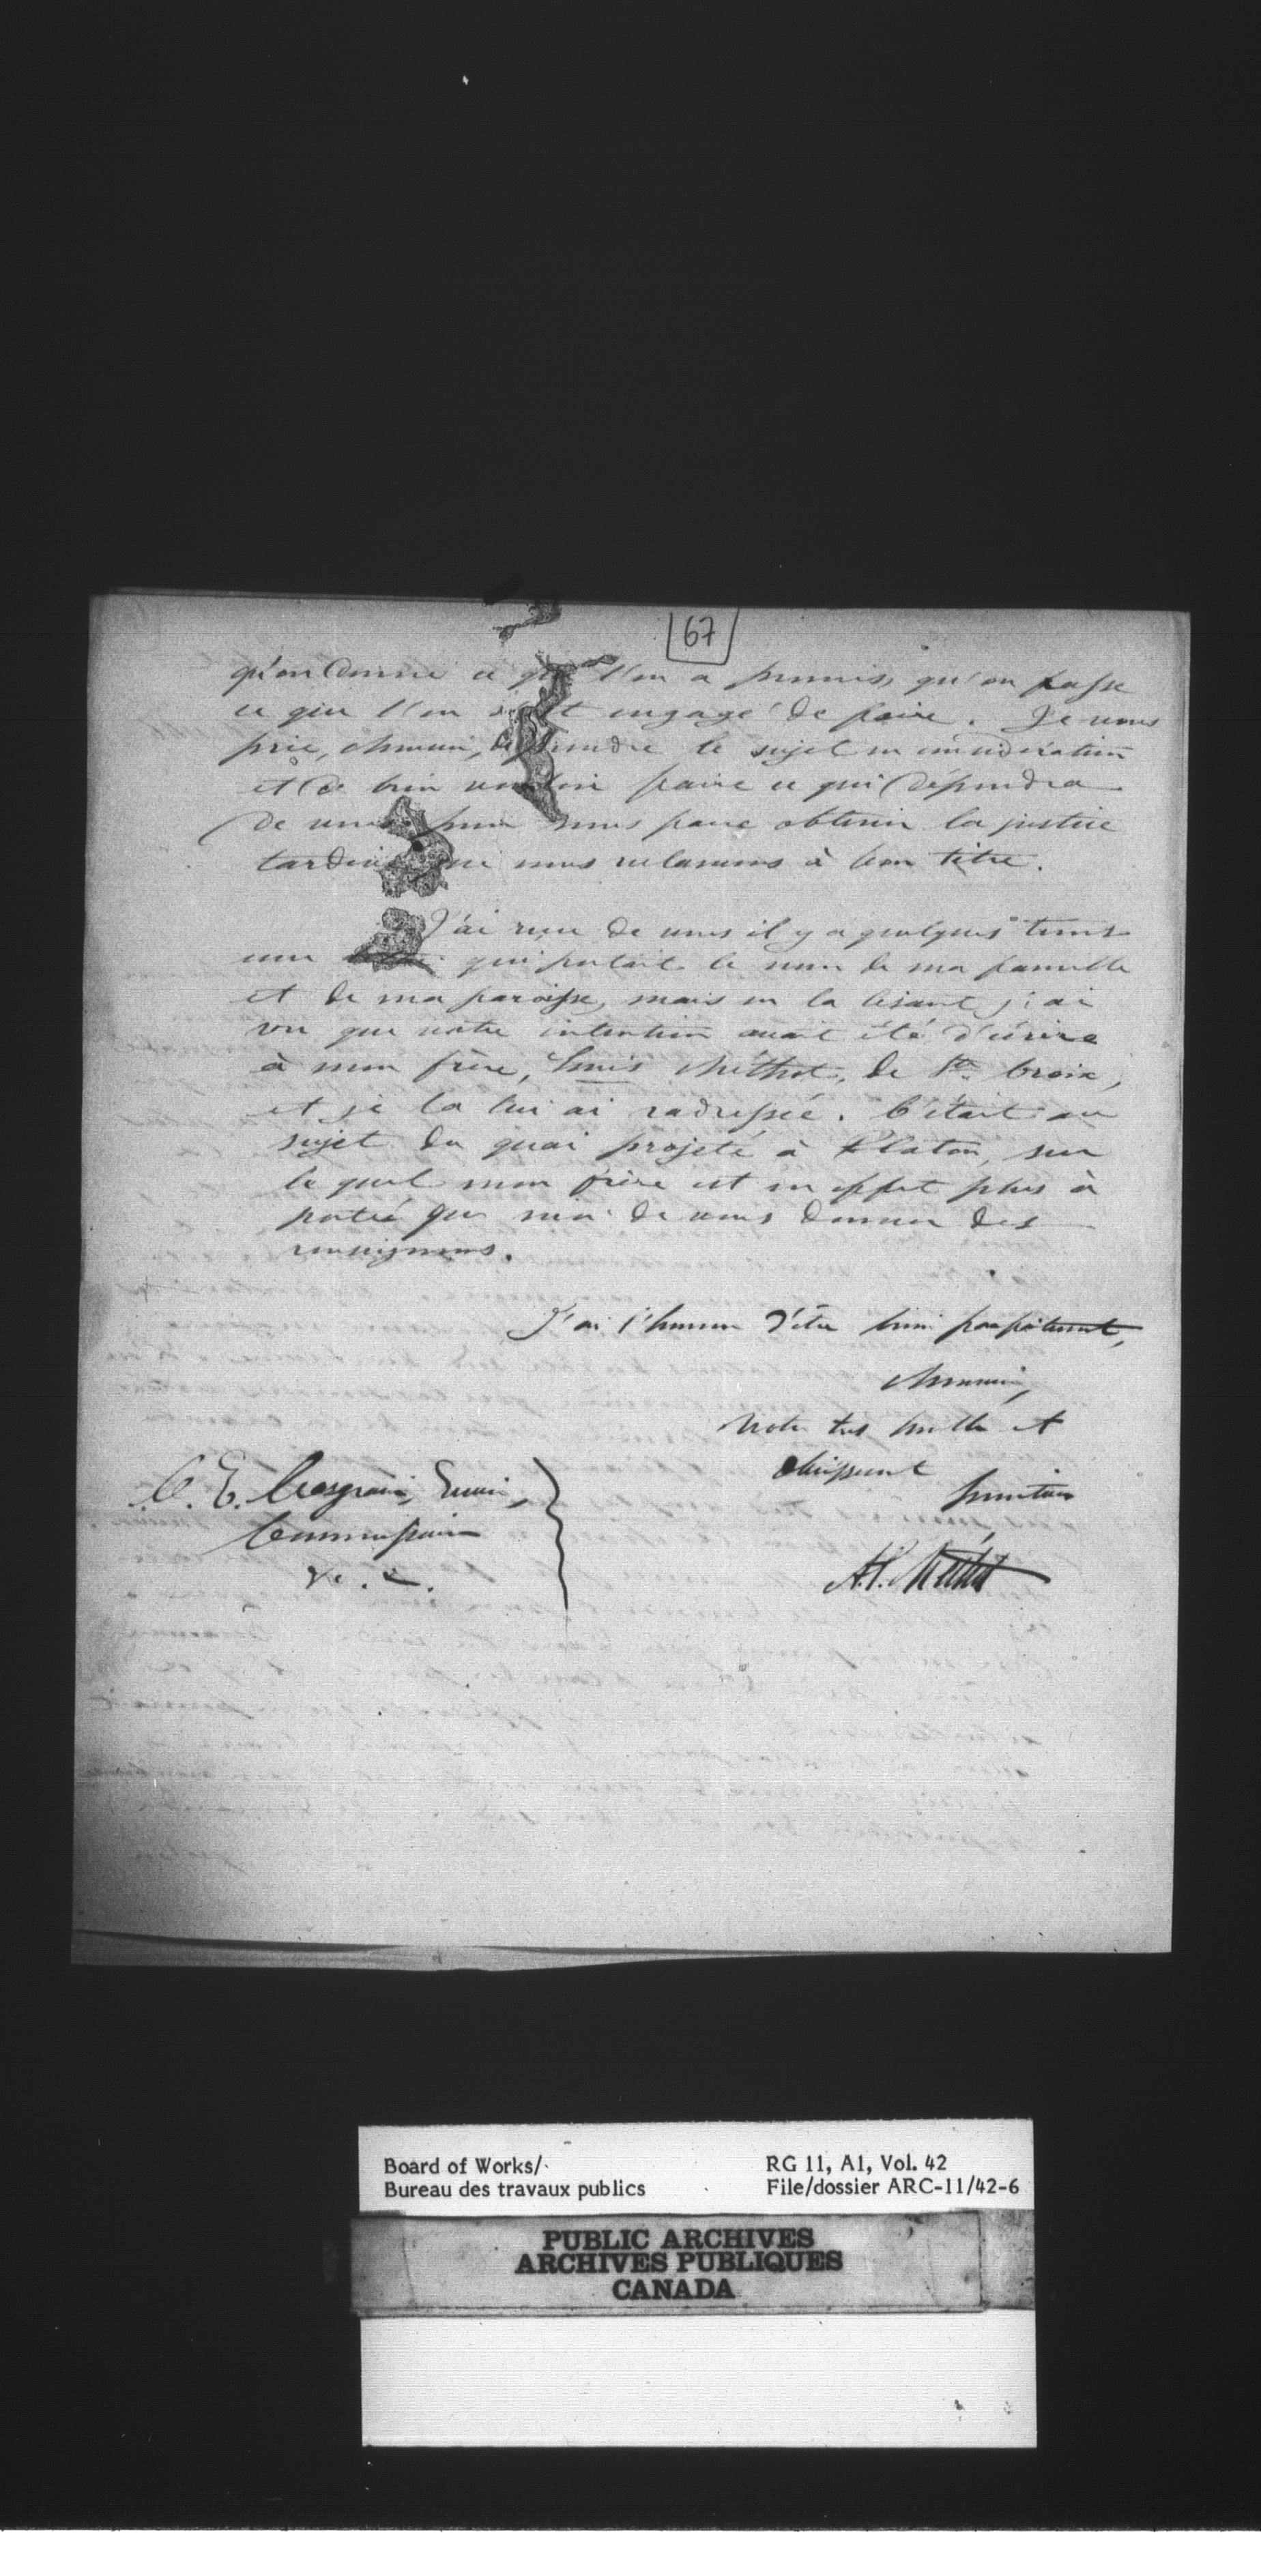 67
qu'on donne ce que l'on a promis, qu'on fasse
ce que l'on s'est engagé de faire. Je vous
prie, Monsieur, de prendre le sujet en considération
et de bien vouloir faire ce qui dépendra
de vous pour nous faire obtenir la justice
tardive que nous réclamons à bon titre.
J'ai reçu de vous il y a quelques tems
une qui portait le nom de ma famille
et de ma paroisse, mais en la lisant j'ai
vu que votre intention avait été d'écrire
à mon frère, Louis Méthot, de Ste. Croix,
et je la lui ai radressée. C'était au
sujet du quai projeté à Platon, sur
le quel mon frère est en effet plus à
portée que moi de vous donner des
renseignemens.
J'ai l'honneur d'être bien parfaitement,
Monsieur,
Votre très humble et
obéissant
serviteur
A.P. Méthot
C. E. Casgrain, Ecuier,
Commissaire
&c. &.
Board of Works/
Bureau des travaux publics
RG 11, A1, Vol. 42
File/dossier ARC-11/42-6
PUBLIC ARCHIVES
ARCHIVES PUBLIQUES
CANADA